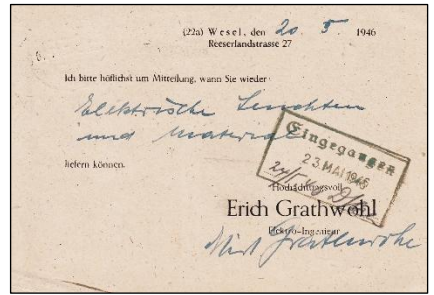 (22a) Wesel, den 20. 5. 1946
Reeserlandstrasse 27
Ich bitte höflichst um Mitteilung, wann Sie wieder
Elektrische Leuchten
und Material
liefern können.
Eingegangen
23. MAI 1946
Hochachtungsvoll
Erich Grathwohl
Elektro-Ingenieur